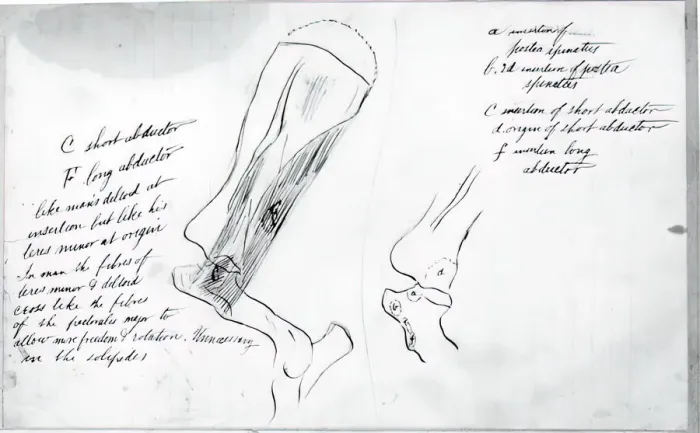 C short abductor
F long abductor
like man's deltoid at
insertion but like his
teres minor at origin
In man the fibres of
teres minor & deltoid
cross like the fibres
of the pectoralis major to
allow more freedom & rotation. Unnecessary
in the solipedes
a insertion of
postea spinatus
b. 2d insertion of postea
spinatus
C insertion of short abductor
d. origin of short abductor
f insertion long
abductor
d
a
b